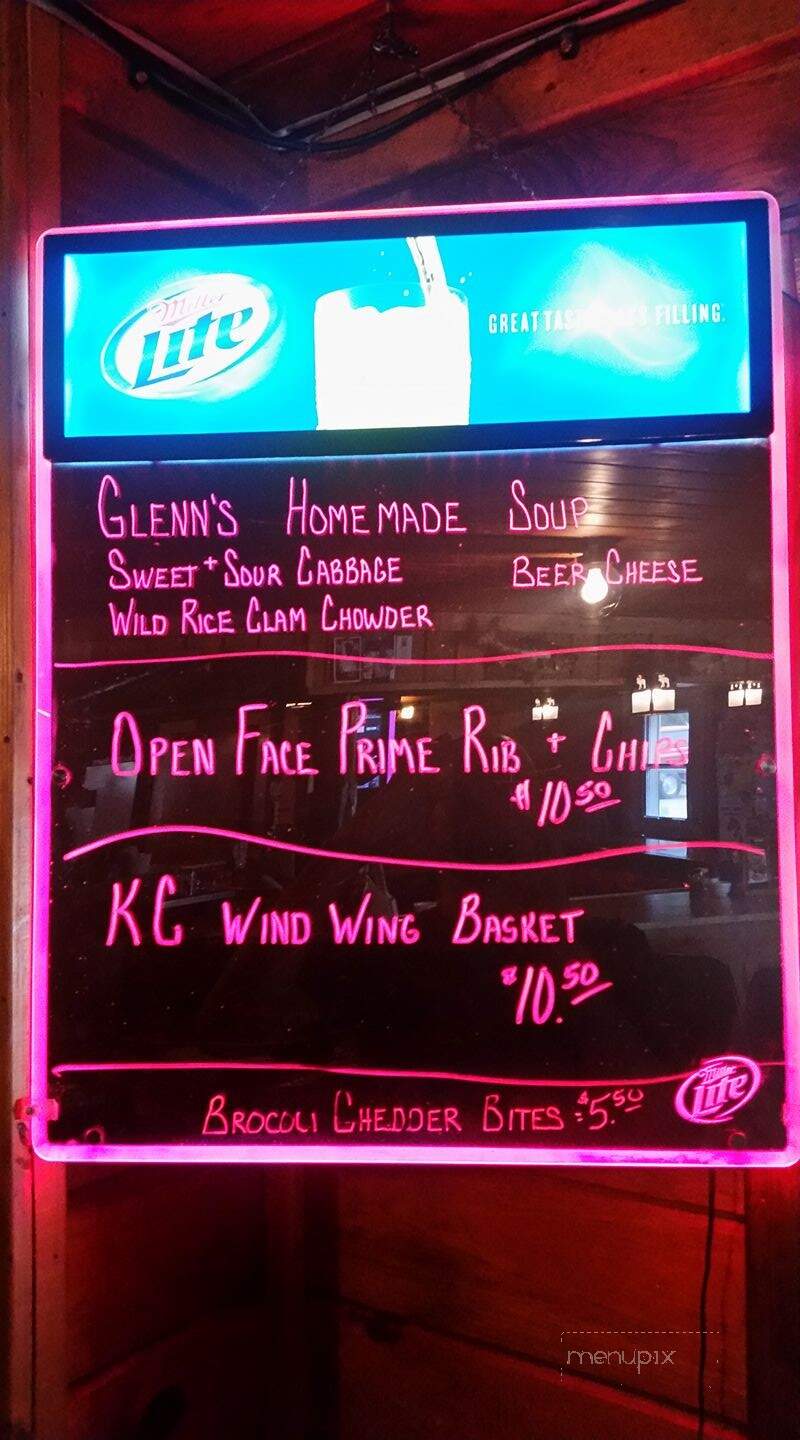 Miller
Lite
GREAT TASTE LESS FILLING.
GLENN'S HOMEMADE SOUP
SWEET + SOUR CABBAGE BEER CHEESE
WILD RICE CLAM CHOWDER
OPEN FACE PRIME RIB + CHIPS
$10.50
KC WIND WING BASKET
$10.50
Miller
Lite
BROCOLI CHEDDER BITES $5.50
menupix